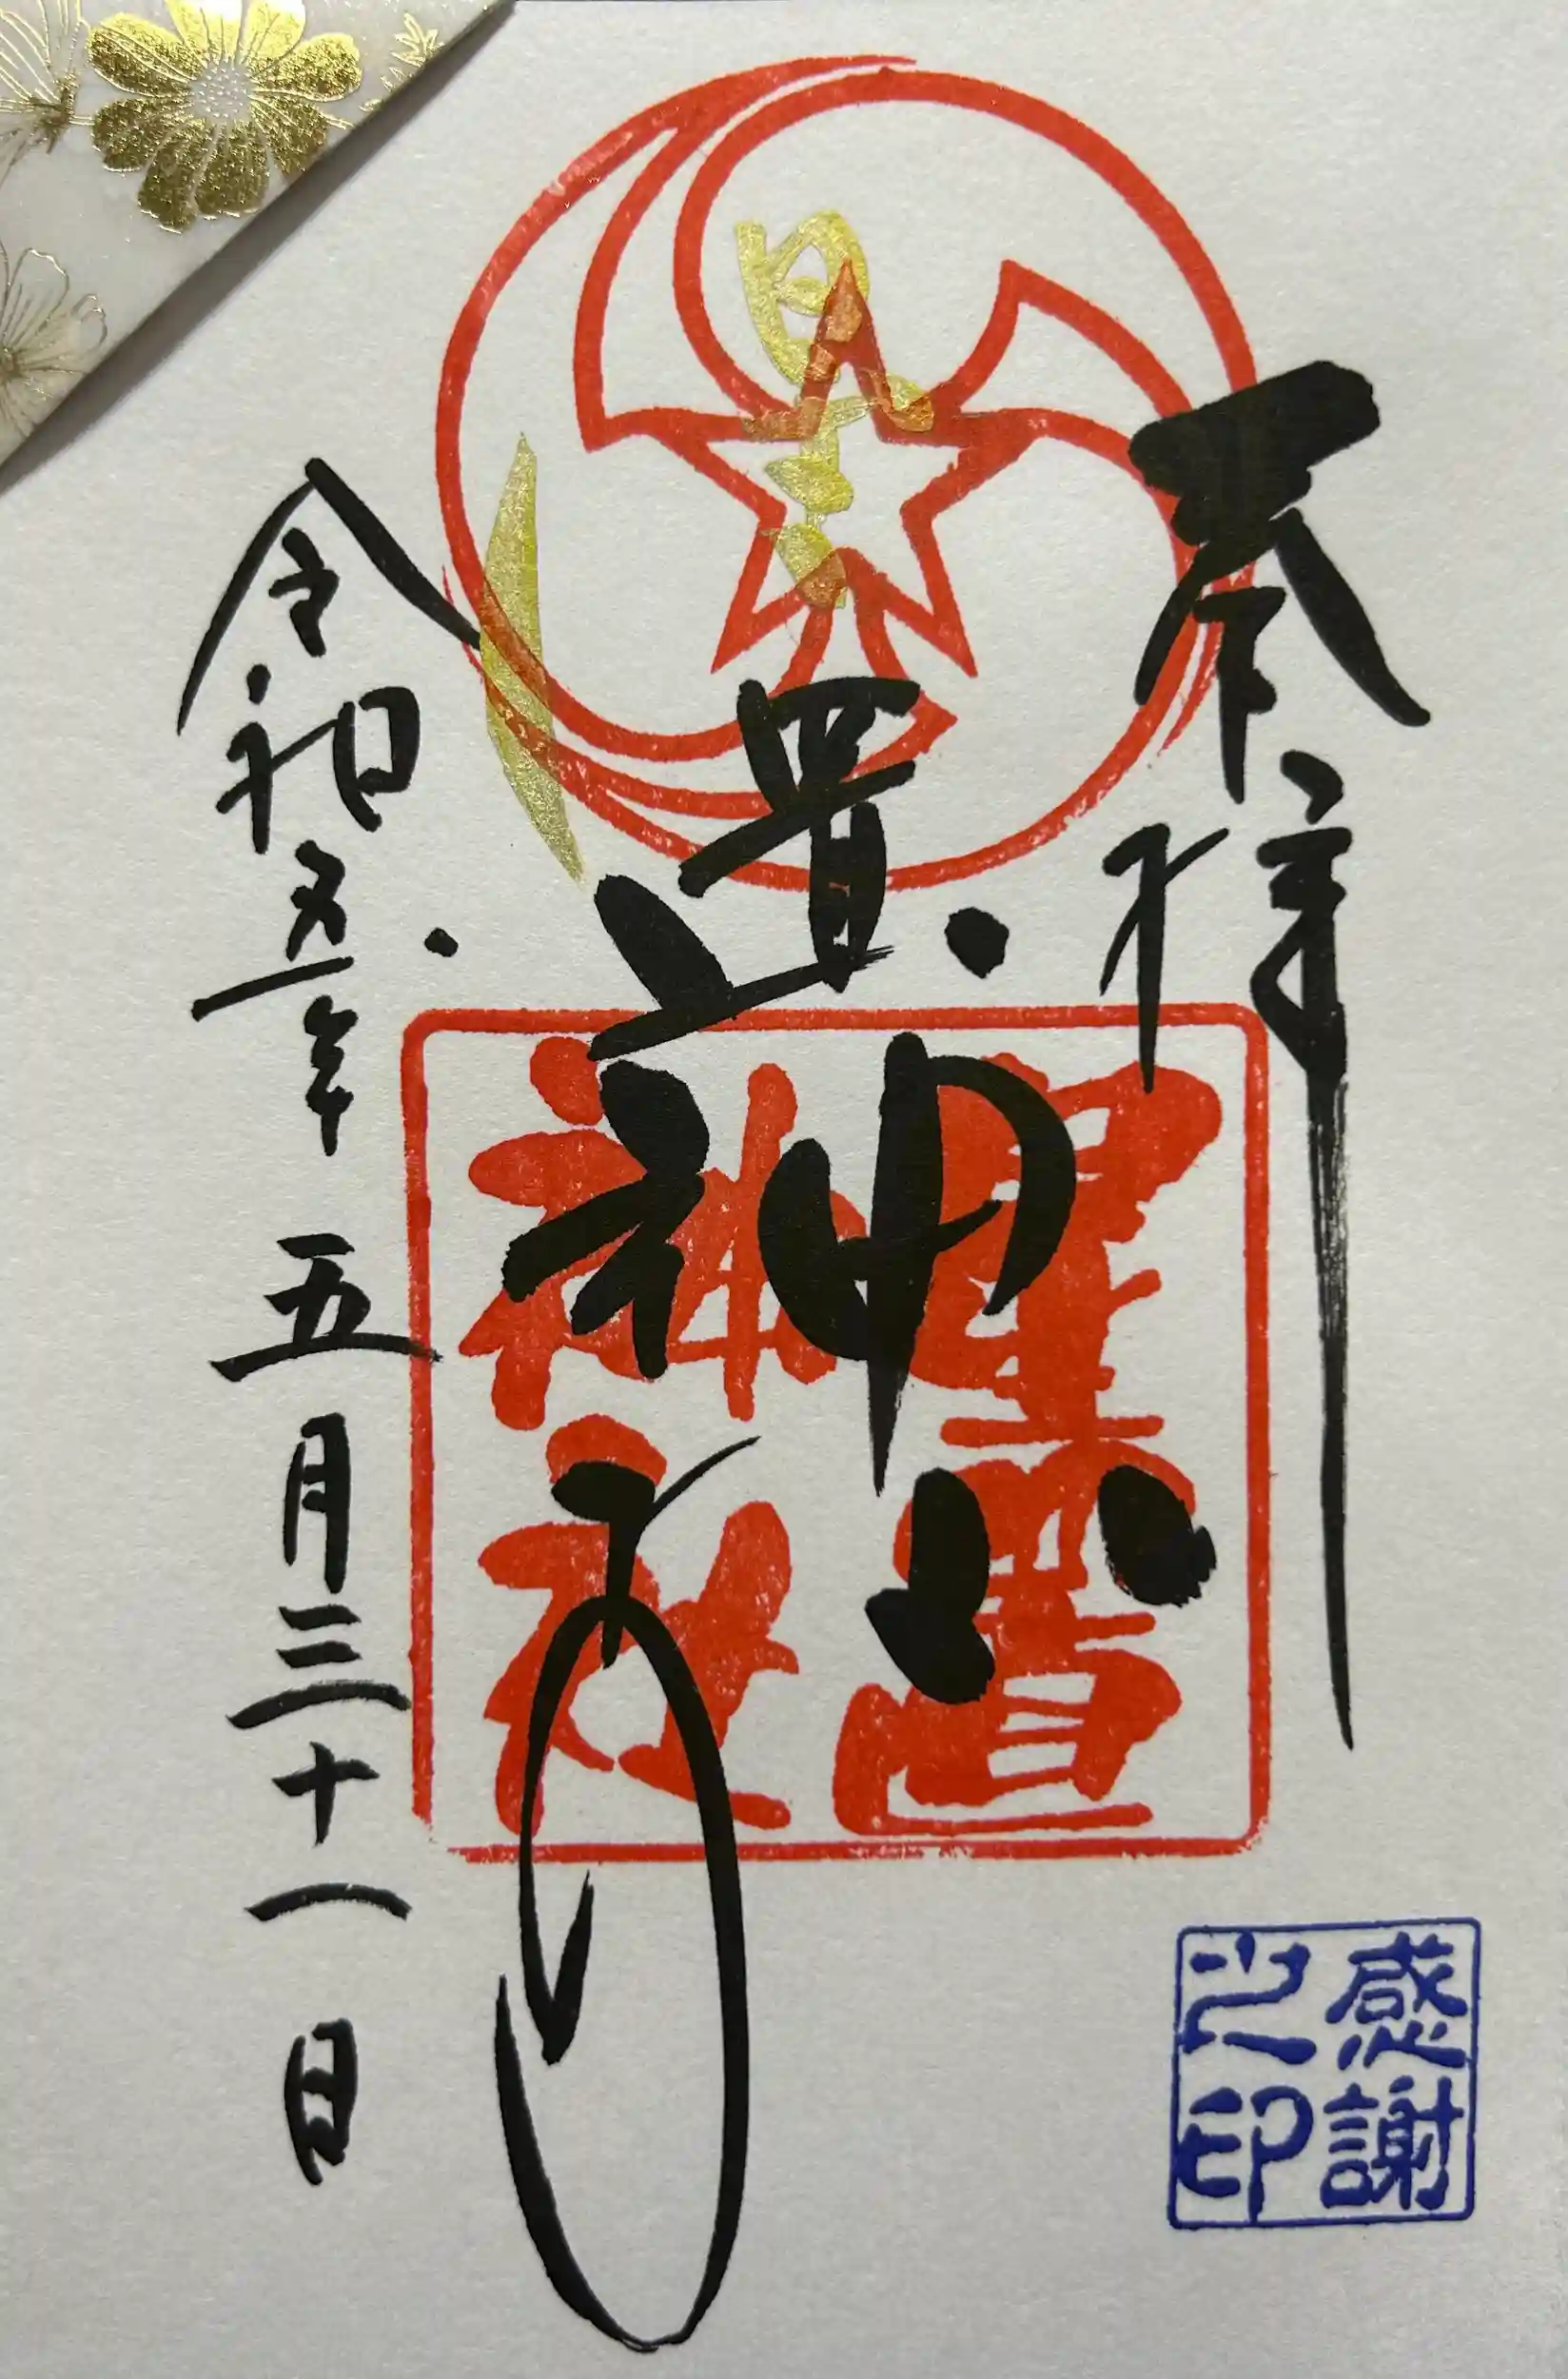 奉拝
星置神社
星置神社
令和五年
五月三十一日
感謝
之印